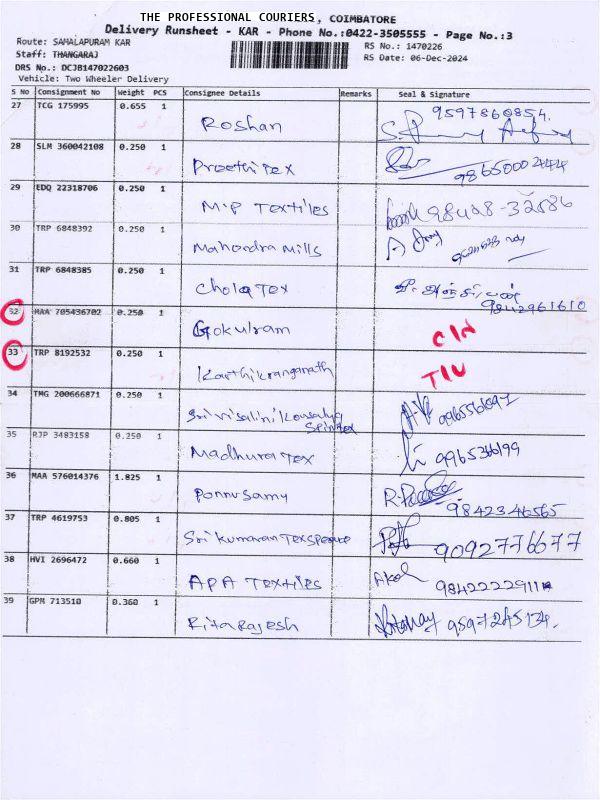 THE PROFESSIONAL COURIERS, COIMBATORE
Delivery Runsheet - KAR - Phone No.:0422-3505555 - Page No.:3
Route: SAMALAPURAM KAR
RS No.: 1470226
Staff: THANGARAJ
RS Date: 06-Dec-2024
DRS No.: DCJB147022603
Vehicle: Two Wheeler Delivery
S No Consignment No Weight PCS Consignee Details Remarks Seal & Signature
27 TCG 175995 0.655 1 Roshan 9597860854.
28 SLM 360042108 0.250 1 Preethi Tex 98650002444
29 EDQ 22318706 0.250 1 M.P Textiles 98428-32586
30 TRP 6848392 0.250 1 Mahendra mills
31 TRP 6848385 0.250 1 Chola Tex 9842961610
32 MAA 705436702 0.250 1 Gokulram CIN
33 TRP 8192532 0.250 1 Karthikranganath TIN
34 TMG 200666871 0.250 1 Srivisalini Kousalya Spintex
35 RJP 3483158 0.250 1 Madhura Tex
36 MAA 576014376 1.825 1 Ponnusamy 9842346565
37 TRP 4619753 0.805 1 Sri kumaran Tex 9092776677
38 HVI 2696472 0.660 1 APA Textiles
39 GPM 713510 0.360 1 Rita Rajesh 9597245134.